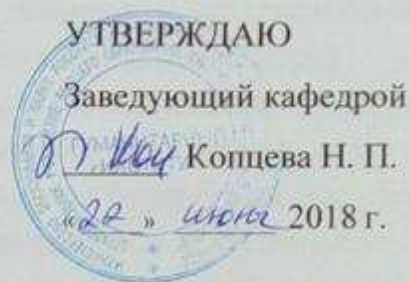 УТВЕРЖДАЮ
Заведующий кафедрой
Копцева Н. П.
«22» июня 2018 г.